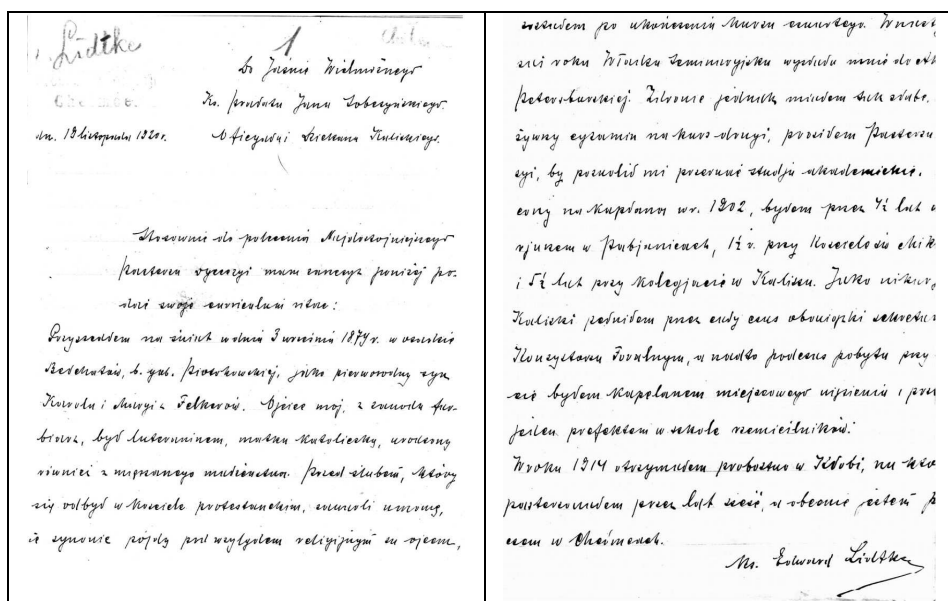 Lidtke
1
Do Jaśnie Wielmożnego
Ks. Prałata Jana Sobczyńskiego
dn. 19 listopada 1920 r.
Oficjała i Dziekana Kaliskiego.
Stosownie do polecenia Najdostojniejszego
Pasterza Dyecezyi mam zaszczyt poniżej po-
dać swoje curriculum vitae:
Przyszedłem na świat w dniu 3 września 1879 r. w osadzie
Bełchatów, b. gub. Piotrkowskiej, jako pierworodny syn
Karola i Maryi z Felkerów. Ojciec mój, z zawodu far-
biarz, był luteraninem, matka katoliczką, urodzoną
również z mięszanego małżeństwa. Przed ślubem, który
się odbył w kościele protestanckim, zawarli umowę,
iż synowie pójdą pod względem religijnym za ojcem,
zostałem po ukończeniu kursu czwartego.
ści roku Władza Seminaryjska wysłała mnie do
Petersburskiej. Zdrowie jednak miałem tak słabe,
żywszy egzamin na kurs drugi, prosiłem Pasterza
zyi, by pozwolił mi przerwać studja akademickie.
cony na kapłana w r. 1902, byłem przez 4½ lat
rjuszem w Pabjanicach, 1½ r. przy Kościele św. Mik
i 5½ lat przy Kolegjacie w Kaliszu. Jako wikary
Kaliski pełniłem przez cały czas obowiązki sekretar
Konsystorza Foralnego, a nadto podczas pobytu przy
cie byłem kapelanem miejscowego więzienia i przez
jeden prefektem w szkole rzemieślników.
W roku 1914 otrzymałem probostwo w Kłobi, na któ
pasterzowałem przez lat sześć, a obecnie jestem p
czem w Chełmcach.
Ks. Edward Lidtke